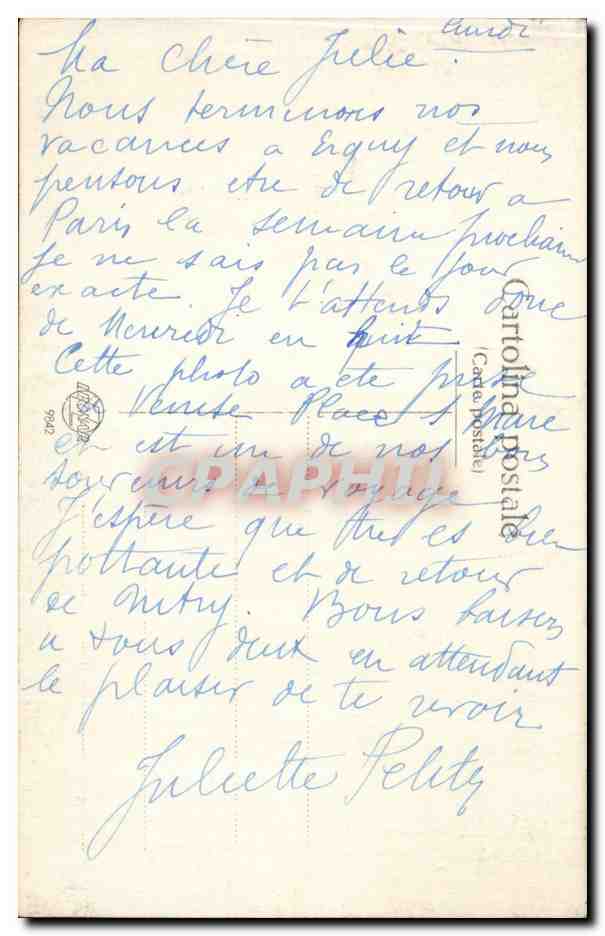 Lundi
Ma chère Julie.
Nous terminons nos
vacances a Erquy et nous
pensons etre de retour a
Paris la semaine prochaine
je ne sais pas le jour
exacte. Je t'attends donc
de Mercredi en huit
Cette photo a ete prise
Venise Place S Marc
et est un de nos bons
souvenirs de voyage
J'espère que tu es bien
portante et de retour
de Mitry. Bons baisers
a tous deux en attendant
le plaisir de te revoir
Juliette
Cartolina postale
(Carte postale)
9842
CPAPHIL